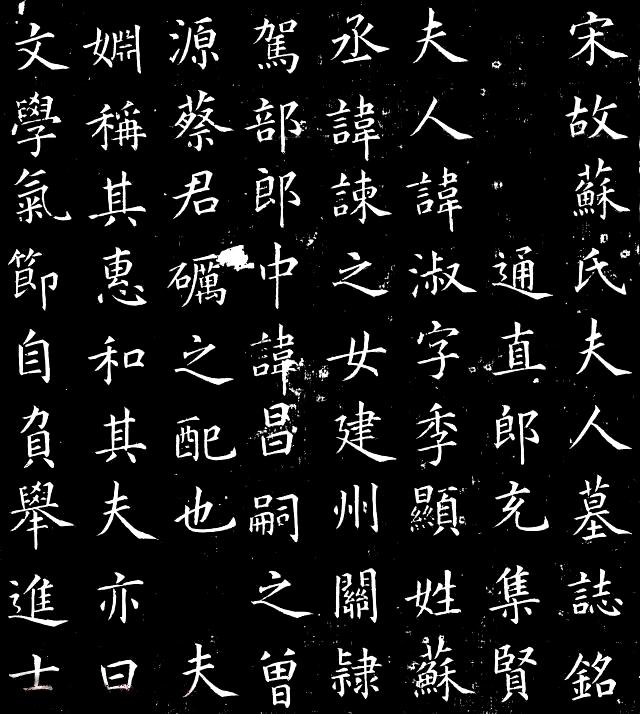 宋故蘇氏夫人墓誌銘
通直郎充集賢
夫人諱淑字季顯姓蘇
丞諱諫之女建州關隸
駕部郎中諱昌嗣之曽
源蔡君礪之配也夫
婣稱其惠和其夫亦曰
文學氣節自負舉進士